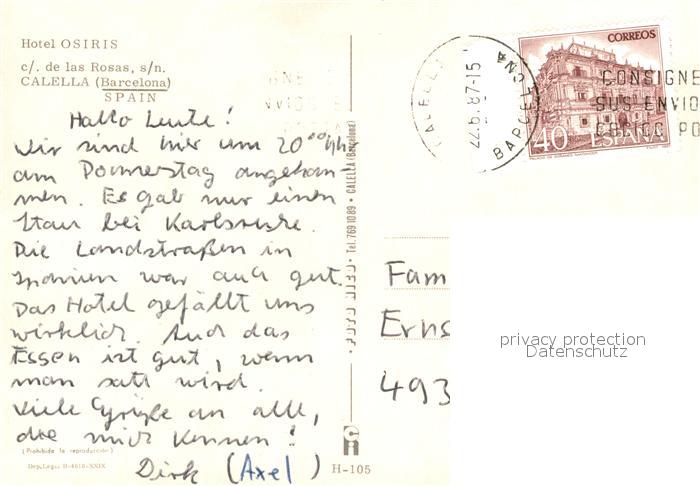 Hotel OSIRIS
c/. de las Rosas, s/n.
CALELLA (Barcelona)
SPAIN
Hallo Leute!
Wir sind hier um 20⁰⁰ Uhr
am Donnerstag angekom
men. Es gab nur einen
Stau bei Karlsruhe.
Die Landstraßen in
Spanien war auch gut.
Das Hotel gefällt uns
wirklich. Auch das
Essen ist gut, wenn
man satt wird.
Viele Grüße an alle,
die mich kennen!
Dirk (Axel)
(Prohibida la reproducción)
Dep. Legal B-4610-XXIX
H-105
Tel. 769 10 89 - CALELLA (Barcelona)
CALELLA
22.6.87-15
BARCELONA
CORREOS
40 ESPAÑA
CONSIGNE
SUS ENVIO
CODIGO PO
Fam
Erns
493
privacy protection
Datenschutz